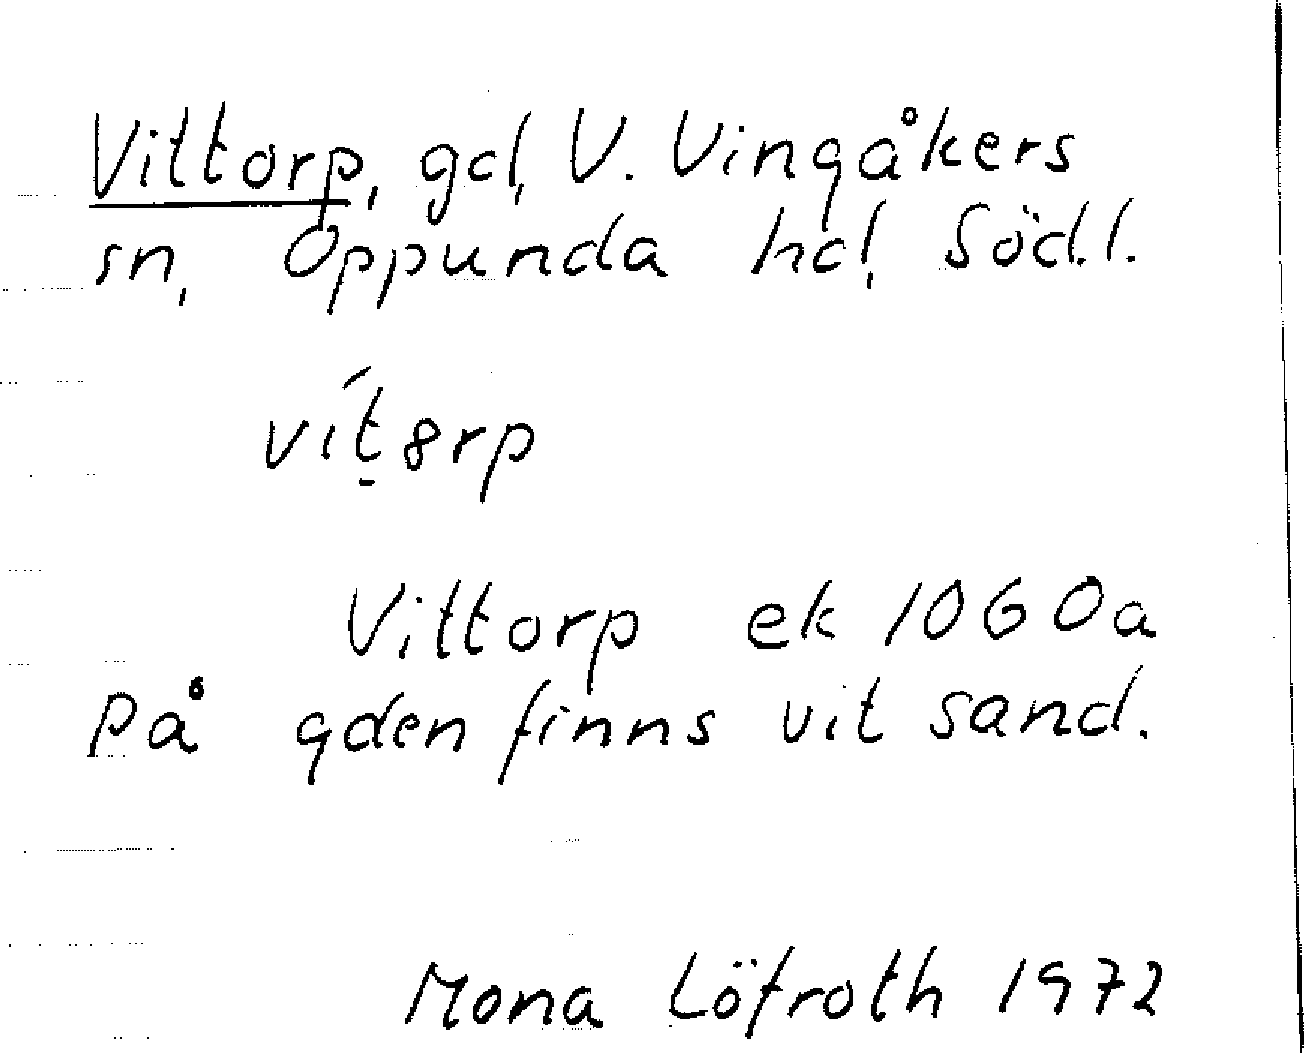 Vittorp, gd, V. Vingåkers
sn, Oppunda hd, Södl.
vít̠8rp
Vittorp ek 1060a
På gden finns vit sand.
Mona Löfroth 1972